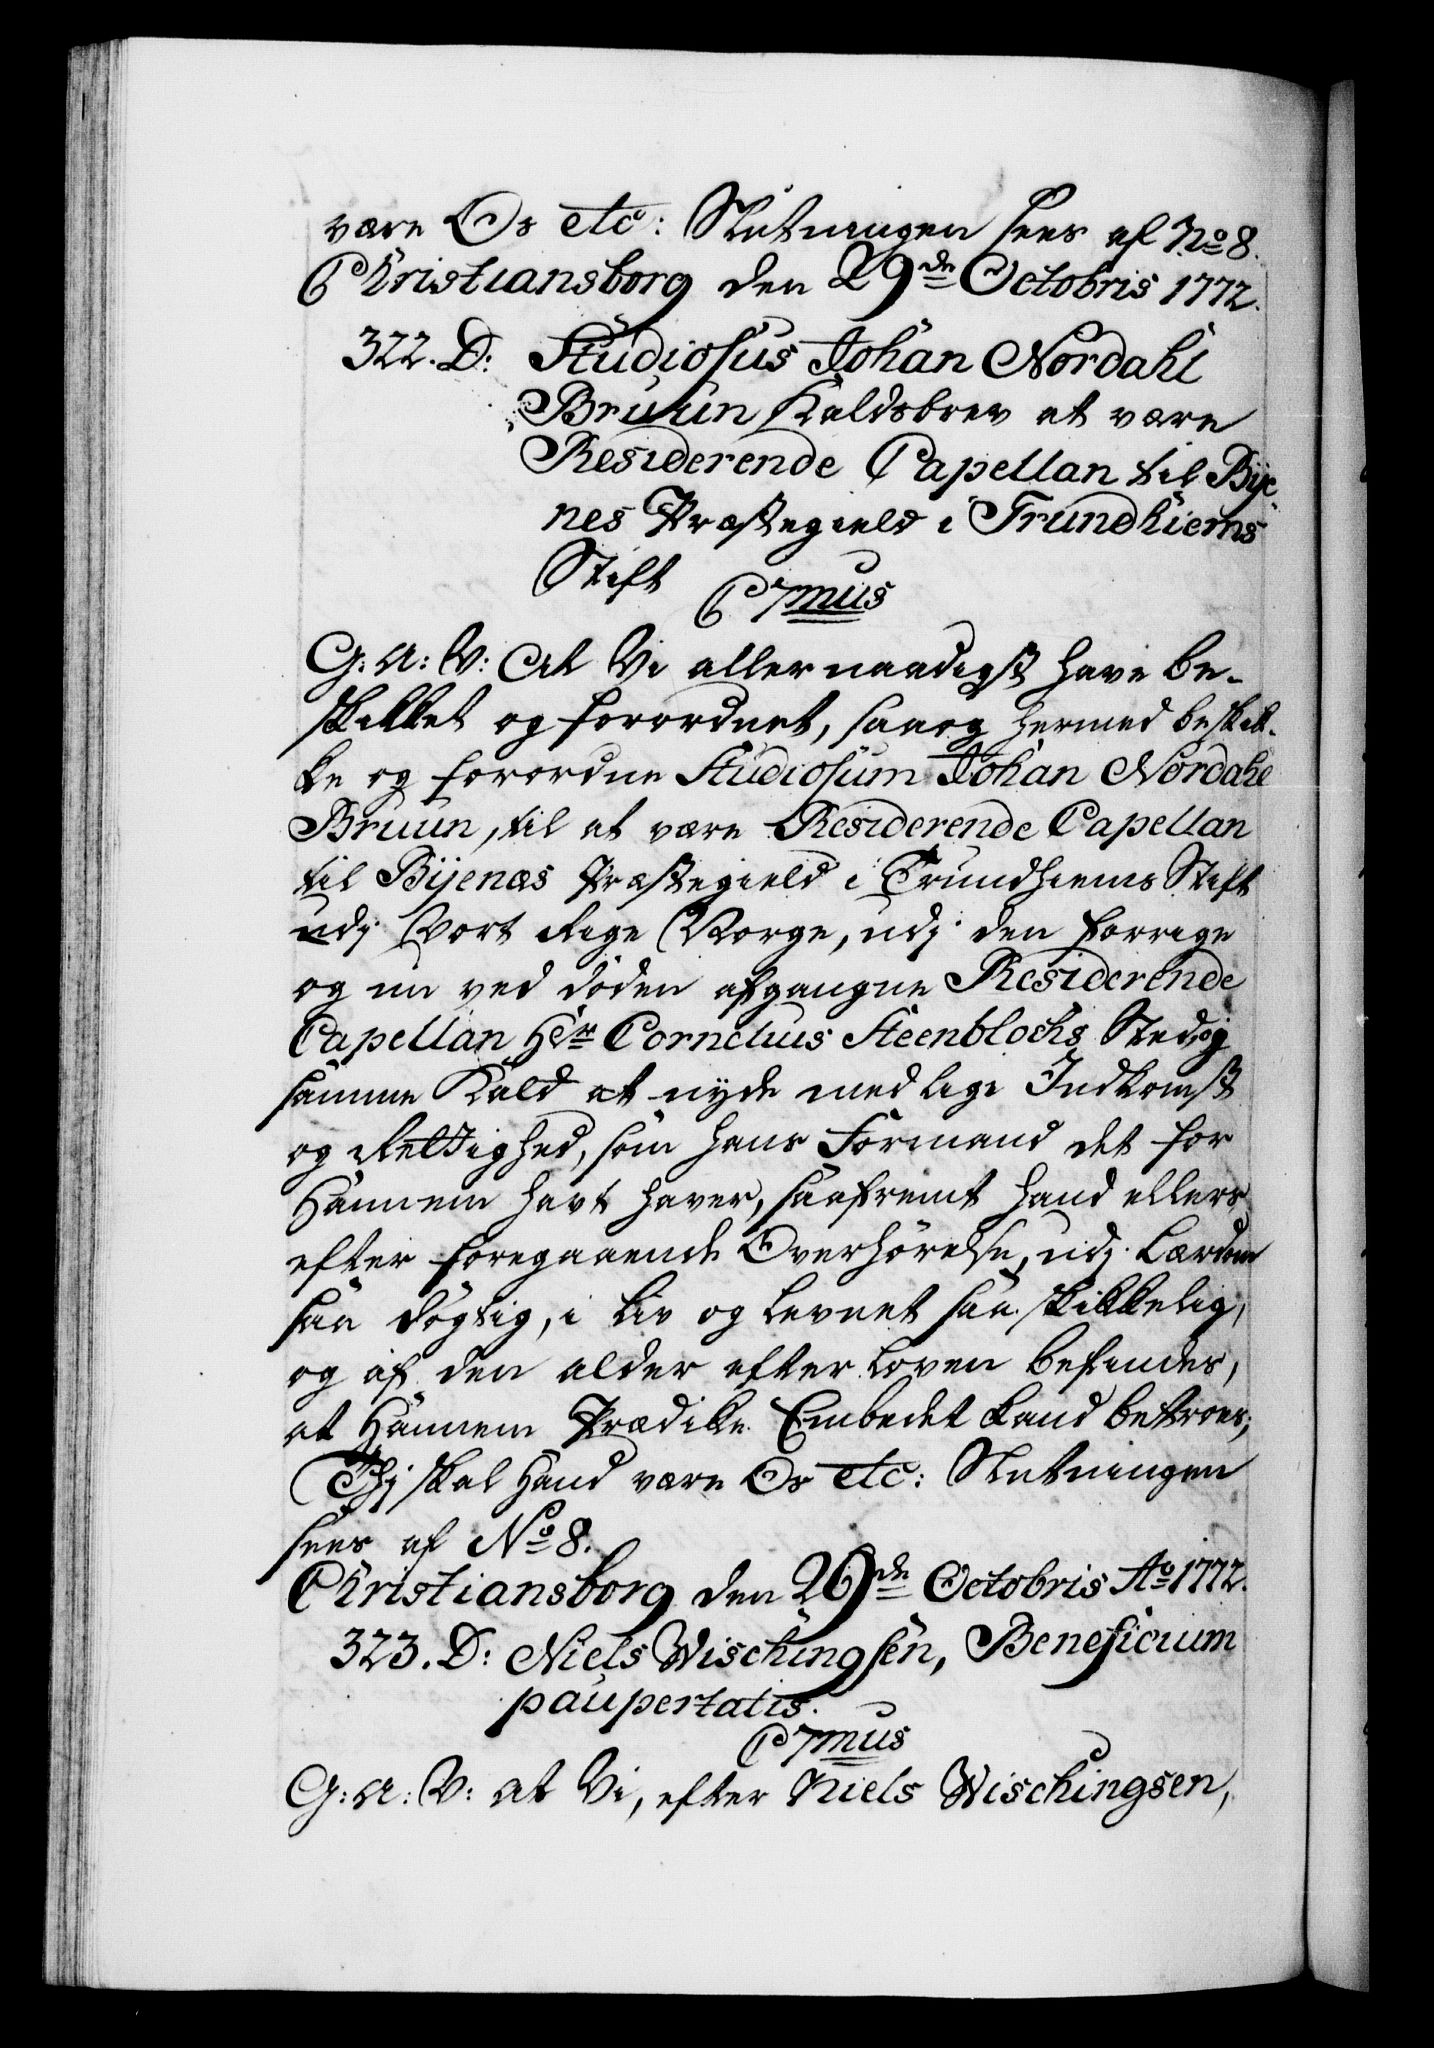 være Os etc: Slutningen sees af No 8.
Christiansborg den 29de Octobris 1772.
322. D: Studiosus Johan Nordahl
Bruun Kaldsbrev at være
Residerende Capellan til Bÿe-
nes Præstegield i Trundhiems
Stift
C7mus
G: A: V: At Vi allernaadigst have be-
skikket og forordnet, saa og hermed beskik-
ke og forordne Studiosum Johan Nordahl
Bruun, til at være Residerende Capellan
til Bÿenæs Præstegield i Trundhiems Stift
udj Vort Rige Norge, udj den forrige
og nu ved döden afgangne Residerende
Capellan Hr Cornelius Steenblochs Sted, og
samme Kald at nyde med lige Indkomst
og Rettighed, som hans Formand det for
Hannem havt haver, saafremt hand ellers
efter foregaaende Overhörelse, udj Lærdom
saa dögtig, i Liv og Levnet saa skikkelig,
og af den alder efter Loven befindes,
at Hannem Prædike Embedet kand betroes;
Thj skal Hand være Os etc: Slutningen
sees af No 8.
Christiansborg den 29de Octobris Ao 1772.
323. D: Niels Wischingsen, Beneficium
paupertatis.
C7mus
G: A: V: at Vi, efter Niels Wischingsen,